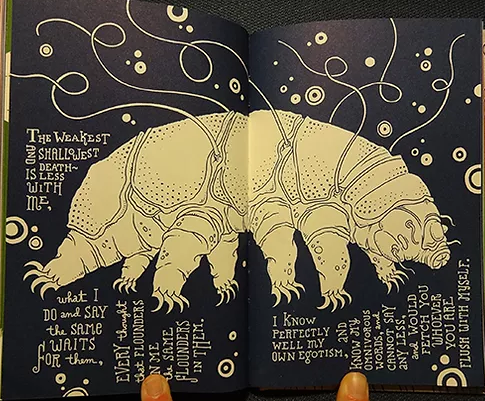 THE WEAKEST
AND SHALLOWEST
DEATH~
IS LESS
WITH
ME,
what I
DO and SAY
the same
WAITS
FOR them,
EVERY thought
that FLOUNDERS
IN ME
the SAME
FLOUNDERS
IN THEM.
I KNOW
PERFECTLY
WELL MY
OWN EGOTISM,
AND
KNOW MY
OMNIVOROUS
WORDS, and
CANNOT SAY
ANY LESS,
and WOULD
FETCH YOU
WHOEVER
YOU ARE
FLUSH WITH MYSELF.